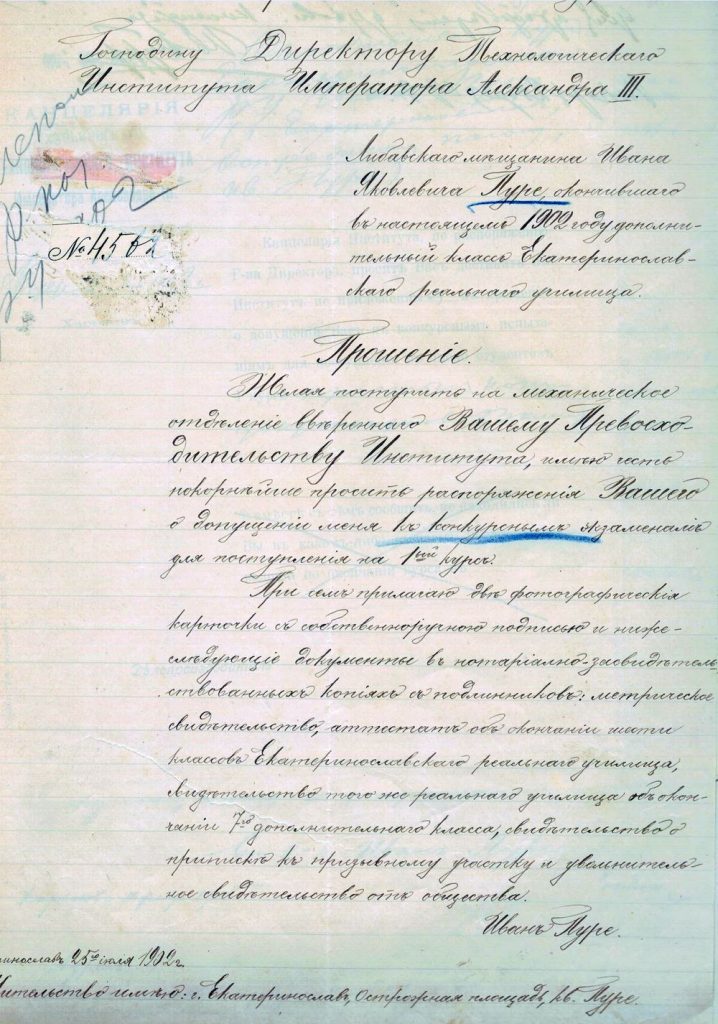 Господину Директору Технологическаго
Института Императора Александра III.
№ 456
Либавскаго мѣщанина Ивана
Яковлевича Пуре, окончившаго
въ настоящемъ 1902 году дополни-
тельный классъ Екатеринослав-
скаго реальнаго училища.
Прошеніе.
Желая поступить на механическое
отдѣленіе ввѣреннаго Вашему Превосхо-
дительству Института, имѣю честь
покорнѣйше просить распоряженія Вашего
о допущеніи меня къ конкурснымъ экзаменамъ
для поступленія на 1ый курсъ.
При семъ прилагаю двѣ фотографическія
карточки съ собственноручною подписью и ниже-
слѣдующіе документы въ нотаріально-засвидѣтель-
ствованныхъ копіяхъ съ подлинниковъ: метрическое
свидѣтельство, аттестатъ объ окончаніи шести
классовъ Екатеринославскаго реальнаго училища,
свидѣтельство того же реальнаго училища объ окон-
чаніи 7го дополнительнаго класса, свидѣтельство о
припискѣ къ призывному участку и увольнитель-
ное свидѣтельство отъ общества.
Иванъ Пуре.
ринославъ 25го іюля 1902 г.
ительство имѣю: г. Екатеринославъ, Острожная площадь, д. Пуре.